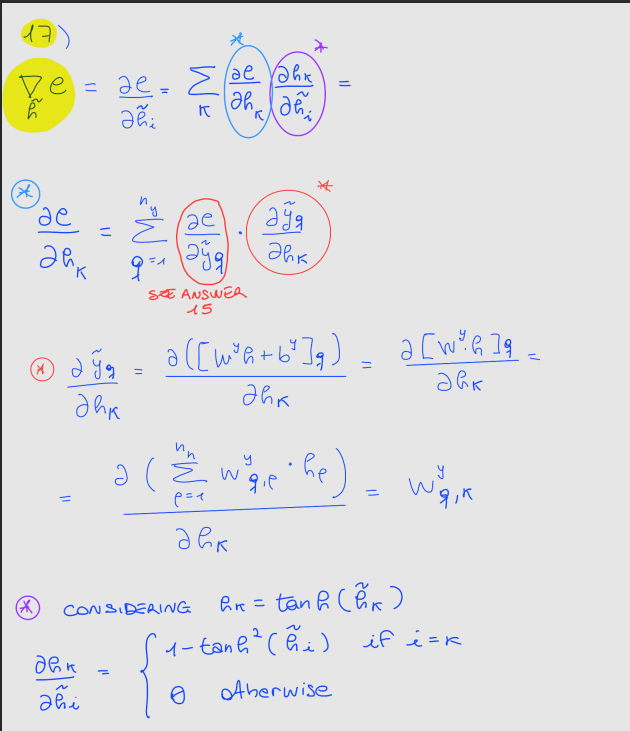 17)
∇_h̃ ℓ = ∂ℓ/∂h̃_i = Σ_K ∂ℓ/∂h_K ∂h_K/∂h̃_i =
* *
* ∂ℓ/∂h_K = Σ_{q=1}^{n_y} ∂ℓ/∂ỹ_q · ∂ỹ_q/∂h_K *
SEE ANSWER
15
* ∂ỹ_q/∂h_K = ∂([W^y h + b^y]_q)/∂h_K = ∂[W^y·h]_q/∂h_K =
= ∂(Σ_{ℓ=1}^{n_h} W^y_{q,ℓ} · h_ℓ)/∂h_K = W^y_{q,K}
* CONSIDERING h_K = tanh(h̃_K)
∂h_K/∂h̃_i = { 1-tanh²(h̃_i) if i=K
0 otherwise